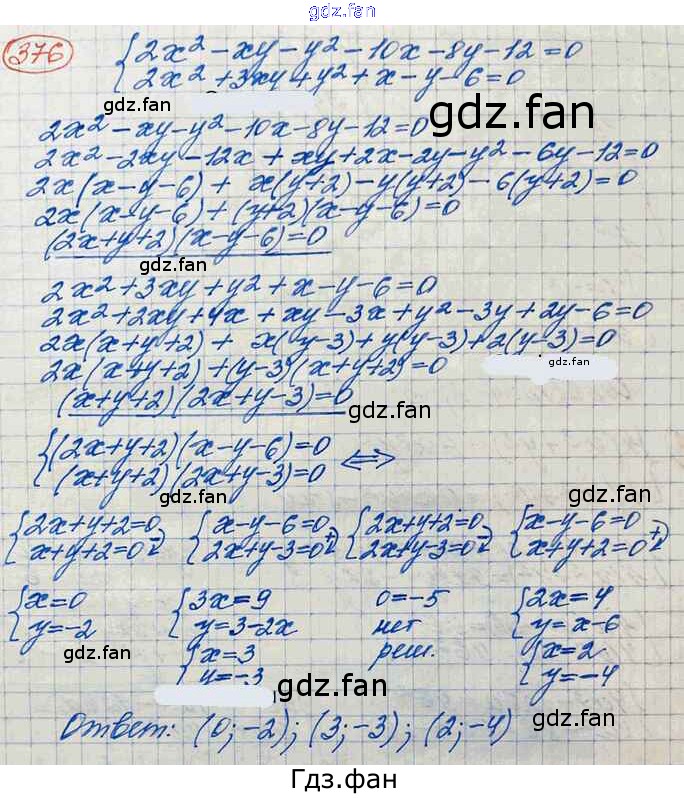 gdz.fan
376
{2x² - xy - y² - 10x - 8y - 12 = 0
{2x² + 3xy + y² + x - y - 6 = 0
gdz.fan
gdz.fan
2x² - xy - y² - 10x - 8y - 12 = 0
2x² - 2xy - 12x + xy + 2x - 2y - y² - 6y - 12 = 0
2x(x - y - 6) + x(y+2) - y(y+2) - 6(y+2) = 0
2x(x - y - 6) + (y+2)(x - y - 6) = 0
(2x + y + 2)(x - y - 6) = 0
gdz.fan
2x² + 3xy + y² + x - y - 6 = 0
2x² + 2xy + 4x + xy - 3x + y² - 3y + 2y - 6 = 0
2x(x + y + 2) + x(y - 3) + y(y - 3) + 2(y - 3) = 0
2x(x + y + 2) + (y - 3)(x + y + 2) = 0
(x + y + 2)(2x + y - 3) = 0
gdz.fan
{(2x + y + 2)(x - y - 6) = 0
{(x + y + 2)(2x + y - 3) = 0 ⇔
gdz.fan
gdz.fan
{2x + y + 2 = 0 {x - y - 6 = 0 {2x + y + 2 = 0 {x - y - 6 = 0
{x + y + 2 = 0 - {2x + y - 3 = 0 + {2x + y - 3 = 0 - {x + y + 2 = 0 +
{x = 0 {3x = 9 0 = -5 {2x = 4
{y = -2 {y = 3 - 2x нет {y = x - 6
gdz.fan {x = 3 реш. {x = 2
{y = -3 {y = -4
gdz.fan
gdz.fan
Ответ: (0; -2); (3; -3); (2; -4)
Гдз.фан